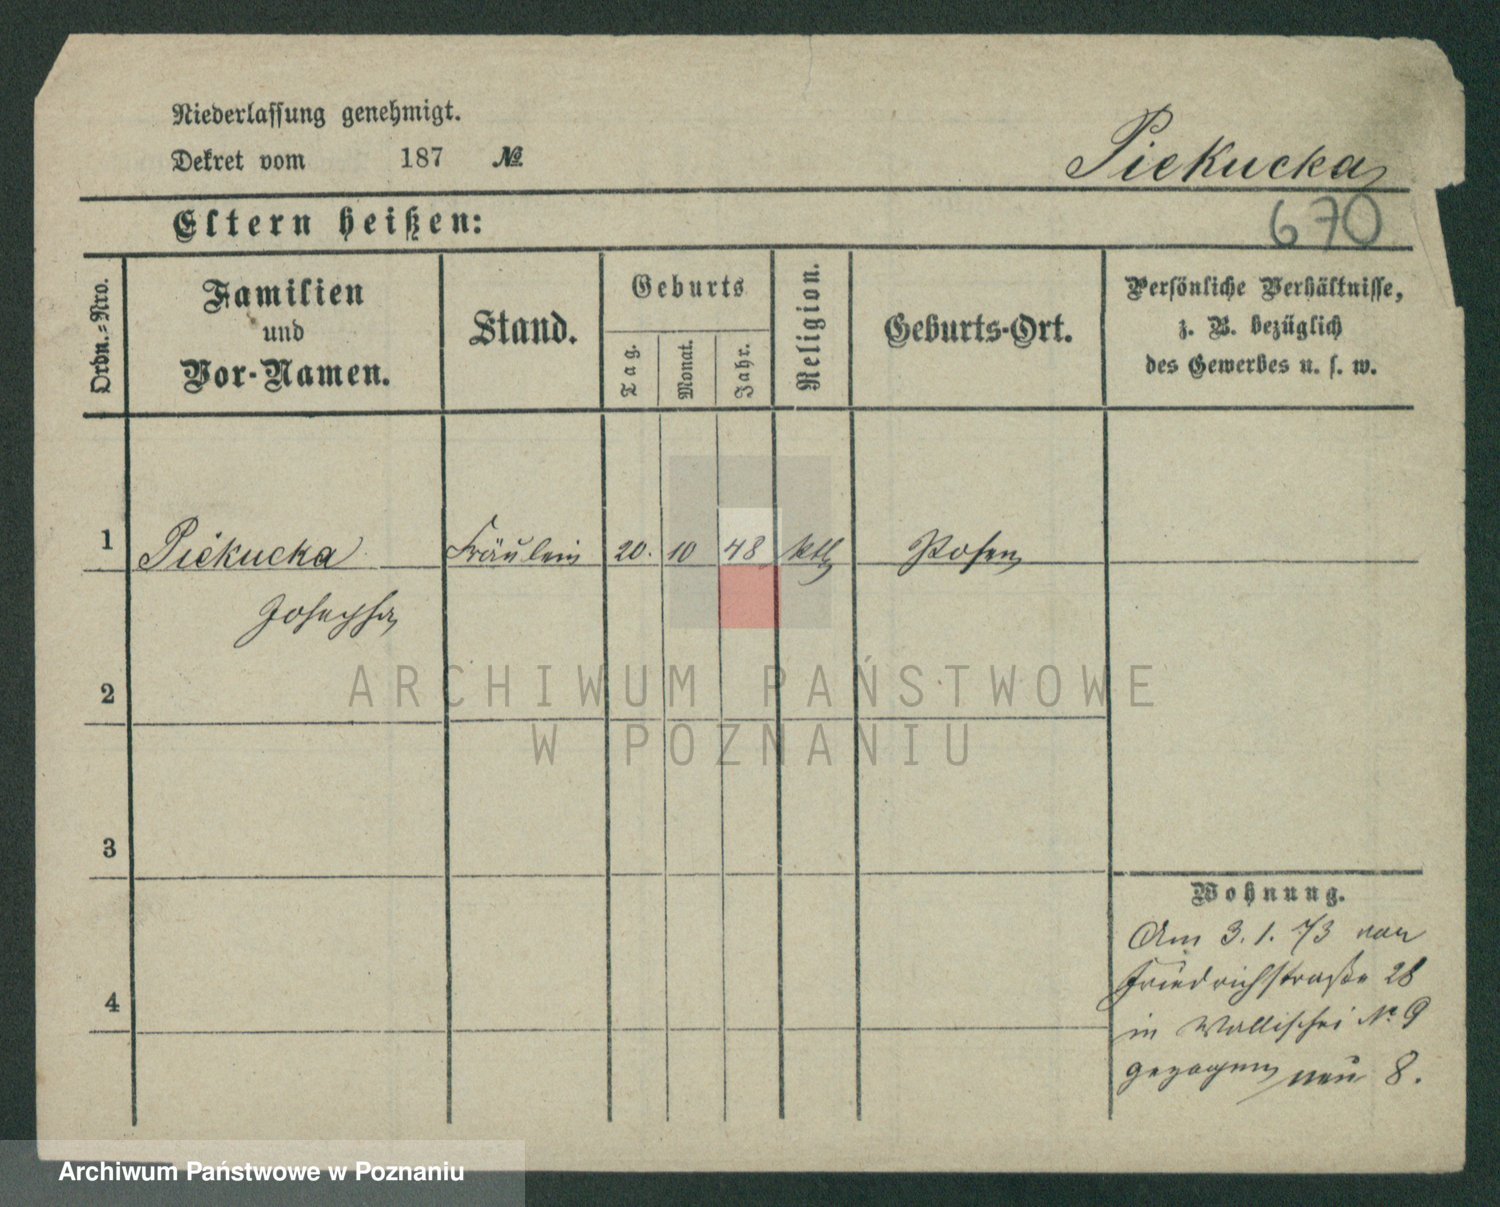 Niederlassung genehmigt.
Dekret vom 187 №
Piekucka
Eltern heißen:
670
Ordn.-Nro.
Familien
und
Vor-Namen.
Stand.
Geburts
Tag.
Monat.
Jahr.
Religion.
Geburts-Ort.
Persönliche Verhältnisse,
z. B. bezüglich
des Gewerbes u. s. w.
1 Piekucka Fräulein 20. 10 48 ktl Posen
Josepha
2
ARCHIWUM PAŃSTWOWE
W POZNANIU
3
Wohnung.
Am 3. 1. 73 von
Friedrichstraße 28
4
in Wallischei № 9
gezogen neu 8.
Archiwum Państwowe w Poznaniu